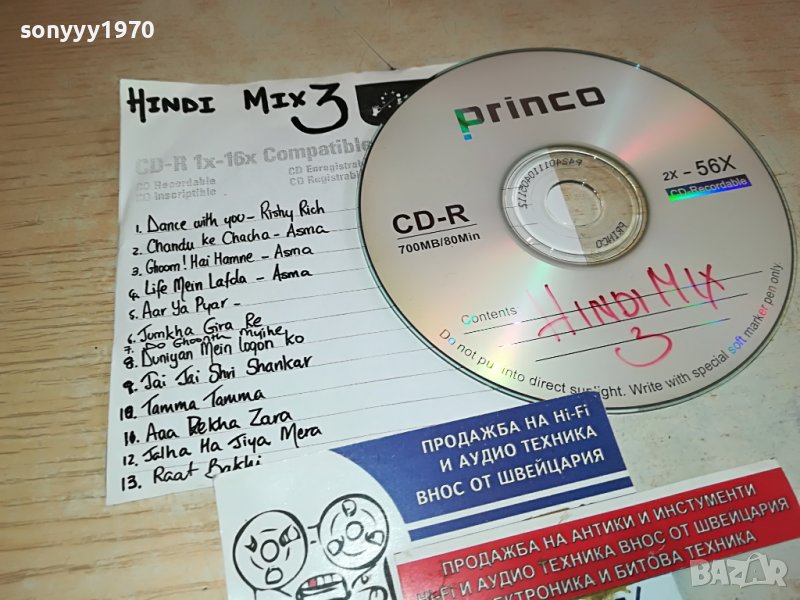 sonyyy1970
HINDI MIX 3
CD-R 1x-16x Compatible
CD Recordable
CD Enregistrable
CD Inscriptible
CD Registrable
1. Dance with you - Rishy Rich
2. Chandu ke Chacha - Asma
3. Ghoom! Hai Hamne - Asma
4. Life Mein Lafda - Asma
5. Aar Ya Pyar -
6. Jumkha Gira Re
7. Do Ghoonth mujhe
8. Duniyan Mein logon ko
9. Jai Jai Shri Shankar
10. Tamma Tamma
10. Aaa Dekha Zara
12. Jalha Ha Jiya Mera
13. Raat Bakhi
princo
2X - 56X
CD-Recordable
CD-R
700MB/80Min
PRINCO
Contents
HINDI MIX
3
Do not put into direct sunlight. Write with special soft marker pen only.
ПРОДАЖБА НА Hi-Fi
И АУДИО ТЕХНИКА
ВНОС ОТ ШВЕЙЦАРИЯ
ПРОДАЖБА НА АНТИКИ И ИНСТУМЕНТИ
Hi-Fi И АУДИО ТЕХНИКА ВНОС ОТ ШВЕЙЦАРИЯ
ЕЛЕКТРОНИКА И БИТОВА ТЕХНИКА
bazar.bg